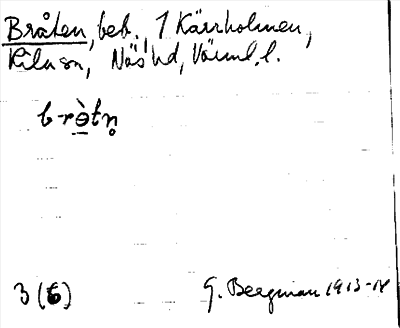 Bråten, beb., 1 Kärrholmen,
Kila sn, Näs hd, Värml. l.
b-rɵ̀tn̥
3 (6)
G. Bergman 1913-14